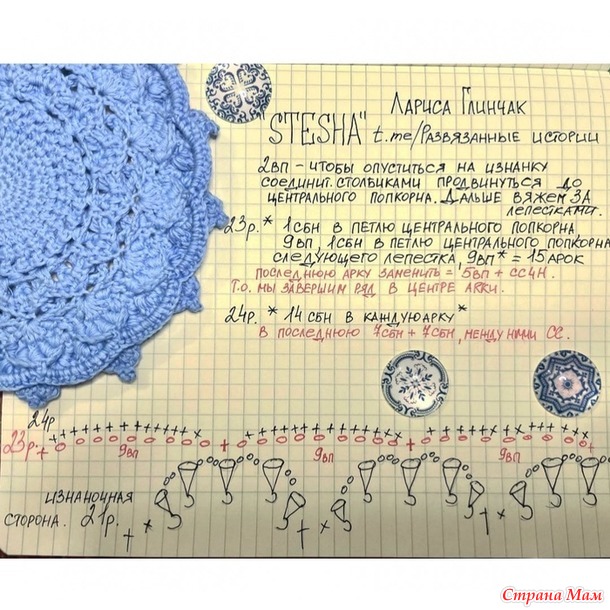 Лариса Глинчак
"STESHA" t.me/Развязанные истории
2вп - чтобы опуститься на изнанку
соединит. столбиками продвинуться до
центрального попкорна. Дальше вяжем ЗА
лепестками.
23р. * 1сбн в петлю центрального попкорна,
9вп, 1сбн в петлю центрального попкорна
следующего лепестка, 9вп * = 15 арок
последнюю арку заменить = 5вп + сс4н.
т.о. мы завершим ряд в центре арки.
24р. * 14 сбн в каждую арку *
в последнюю 7сбн + 7сбн, между ними сс.
24р
23р.
9вп 9вп 9вп
изнаночная
сторона. 21р.
Страна Мам